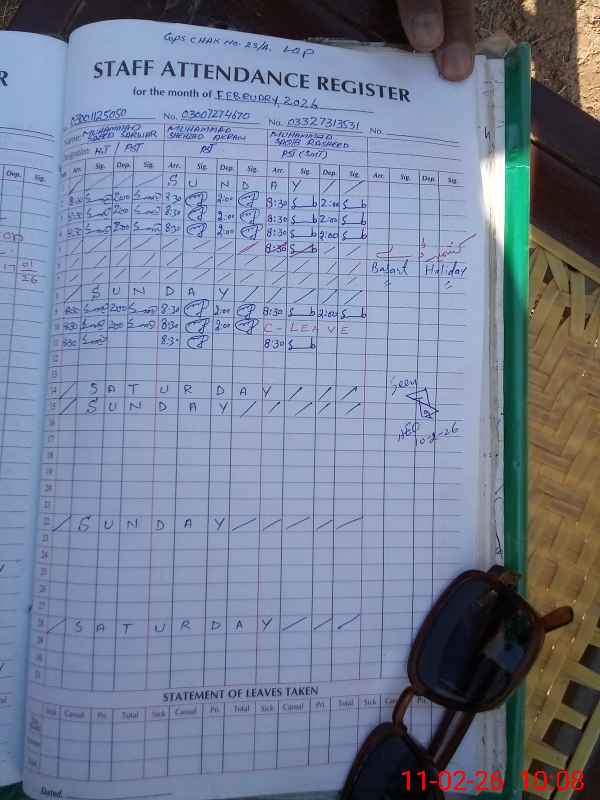 GPS CHAK No. 23/A. LQP
STAFF ATTENDANCE REGISTER
for the month of FEBRUARY, 2026
03001125050 No. 03007274670 No. 03327313531 No.
Name: MUHAMMAD MUHAMMAD MUHAMMAD
SAEED SARWAR
HT / PST PST PST (SMT)
Sig. Arr. Sig. Dep. Sig. Arr. Sig. Dep. Sig. Arr. Sig. Dep. Sig. Arr. Sig. Dep. Sig.
S U N D A Y
8:30 2:00 8:30 2:00 8:30 2:00
8:30 2:00 8:30 2:00 8:30 2:00
8:30 2:00 8:30 2:00 8:30 2:00
8:30
Basant Holiday
〃 〃
8 S U N D A Y
9 8:30 2:00 8:30 2:00 8:30 2:00
10 8:30 2:00 8:30 2:00 C-LEAVE
11 8:30 8:30 8:30
12
13
14 S A T U R D A Y Seen
15 S U N D A Y
16 AEO
17 10-2-26
18
19
20
21
22 S U N D A Y
23
24
25
26
27
28 S A T U R D A Y
29
30
31
STATEMENT OF LEAVES TAKEN
Sick Casual Pri. Total Sick Casual Pri. Total Sick Casual Pri. Total Sick Casual Pri. Total
Dated
11-02-26 10:08